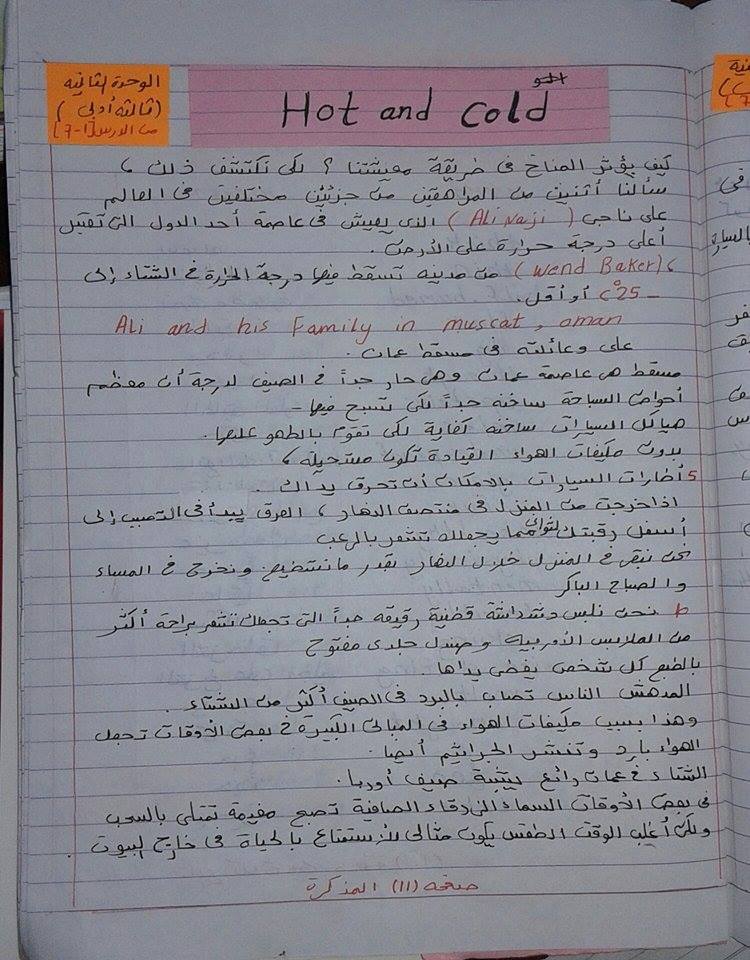 الوحدة الثانيه
(ثالثة أدبى)
من الدرس [1-7]
الجو
Hot and cold
كيف يؤثر المناخ فى طريقة معيشتنا ؟ لكى نكتشف ذلك ،
سألنا أثنين من المراهقين من جزئين مختلفين فى العالم
على ناجى (Ali Naji) الذى يعيش فى عاصمة أحد الدول التى تقبل
أعلى درجة حرارة على الأرض .
، (Wend Baker) من مدينه تسقط فيها درجة الحرارة فى الشتاء إلى
– 25°C أو أقل .
Ali and his Family in muscat, oman
على وعائلته فى مسقط عمان .
مسقط هى عاصمة عمان وهى حار جداً فى الصيف لدرجة أن معظم
أحواض السباحة ساخنه جداً لكى تسبح فيها –
هياكل السيارات ساخنه كفاية لكى تقوم بالطهو عليها .
بدون مكيفات الهواء القيادة تكون مستحيله ،
5 أطارات السيارات بالامكان أن تحرق يداك .
اذا خرجت من المنزل فى منتصف النهار ، العرق يبدأ فى التصبب إلى
أسفل رقبتك لثوانى مما يجعلك تشعر بالرعب
نحن نبقى فى المنزل خلال النهار بقدر ما نستطيع ونخرج فى المساء
والصباح الباكر
نحن نلبس دشداشة قطنية رقيقه جداً التى تجعلك تشعر براحة أكثر
من الملابس الأوربيه وصندل جلدى مفتوح
بالطبع كل شخص يغطى يداها .
المدهش الناس تصاب بالبرد فى الصيف أكثر من الشتاء .
وهذا بسبب مكيفات الهواء فى المبانى الكبيرة فى بعض الأوقات تجعل
الهواء بارد وتنشر الجراثيم أيضا .
الشتاء فى عمان رائع يشبة صيف أوربا .
فى بعض الأوقات السماء الزرقاء الصافية تصبح مغيمة تمتلى بالسحب
ولكن أغلب الوقت الطقس يكون مثالى للأستمتاع بالحياة فى خارج البيوت .
صفحه (11) المذكرة